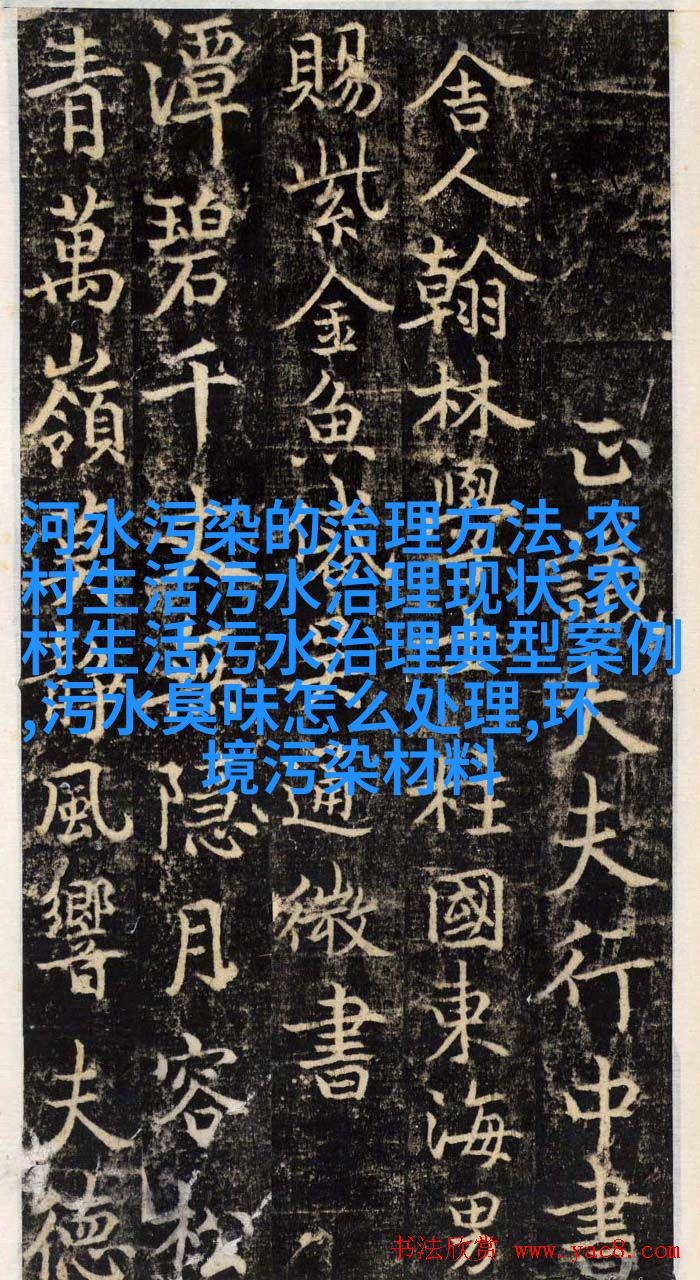 正議大夫行中書
舍人翰林學柱國東海男
賜紫金魚通微書
潭碧千丈隐月容松
青萬嶺風響夫德
河水污染的治理方法,农
村生活污水治理现状,农
村生活污水治理典型案例
,污水臭味怎么处理,环
境污染材料
书法欣赏 www.yac8.com